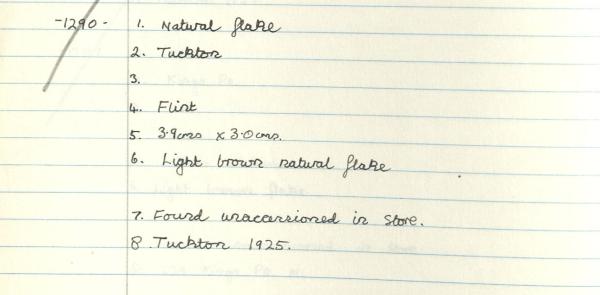 -1290- 1. Natural flake
2. Tuckton
3.
4. Flint
5. 3.9cms x 3.0cms.
6. Light brown natural flake
7. Found unaccessioned in store.
8. Tuckton 1925.